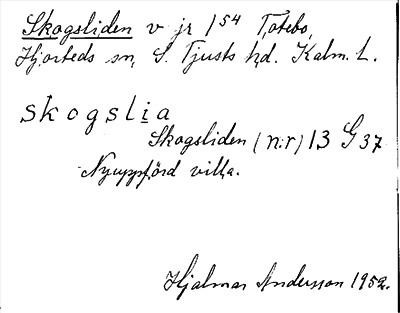 Skogsliden v jr 1⁵⁴ Totebo,
Hjorteds sn, S. Tjusts hd. Kalm. L.
skogslia
Skogsliden (n:r) 13 G 37
Nyuppförd villa.
Hjalmar Andersson 1952.